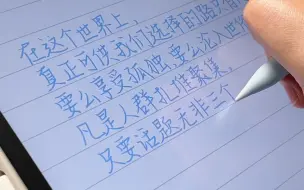 在这个世界上,
真正可供我们选择的路只有
要么享受孤独,要么沦入世俗
凡是人群扎堆聚集,
只要话题无非三个